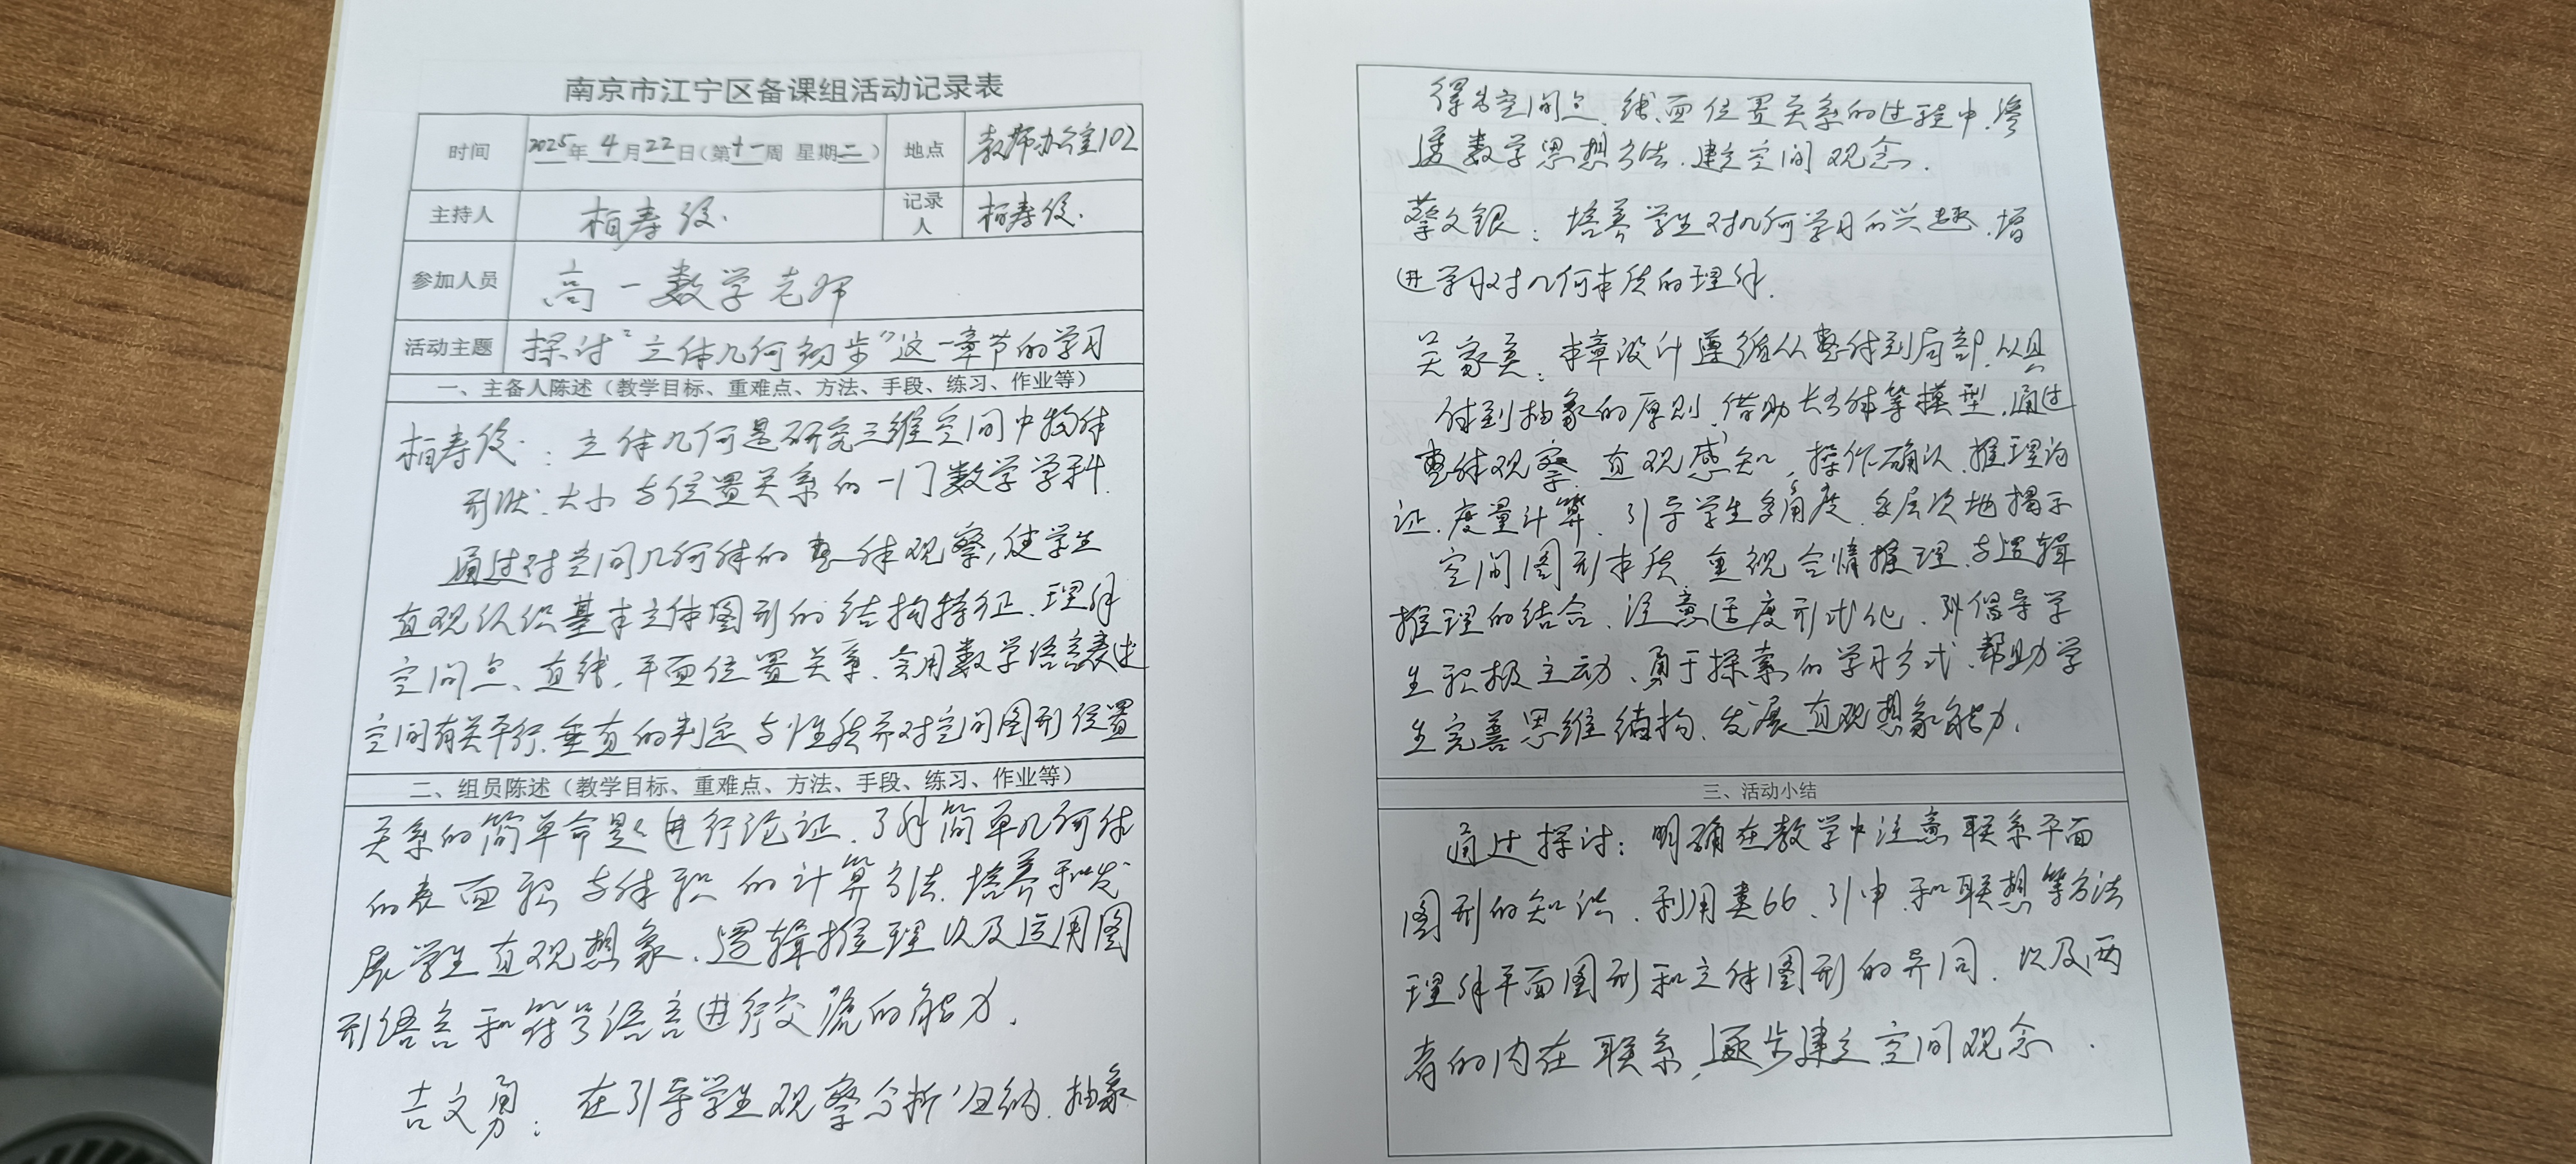 南京市江宁区备课组活动记录表
时间 2025年 4月22日(第十一周 星期二) 地点 教师办公室102
主持人 柏寿俊. 记录人 柏寿俊.
参加人员 高一数学老师
活动主题 探讨“立体几何初步”这一章节的学习
一、主备人陈述（教学目标、重难点、方法、手段、练习、作业等）
柏寿俊: 立体几何是研究三维空间中物体
形状、大小与位置关系的一门数学学科.
通过对空间几何体的整体观察,使学生
直观认识基本立体图形的结构特征、理解
空间点、直线、平面位置关系、会用数学语言表述
空间有关平行、垂直的判定与性质并对空间图形位置
二、组员陈述（教学目标、重难点、方法、手段、练习、作业等）
关系的简单命题进行论证、了解简单几何体
的表面积与体积的计算方法. 培养和发
展学生直观想象、逻辑推理以及运用图
形语言和符号语言进行交流的能力.
吉文勇: 在引导学生观察分析、归纳、抽象
得出空间点、线、面位置关系的过程中,渗
透数学思想方法、建立空间观念.
蔡文银: 培养学生对几何学习的兴趣、增
进学习对几何本质的理解.
吴家亮: 本章设计遵循从整体到局部、从具
体到抽象的原则、借助长方体等模型,通过
整体观察、直观感知,操作确认、推理论
证、度量计算、引导学生多角度、多层次地揭示
空间图形本质、重视合情推理与逻辑
推理的结合、注意适度形式化、倡导学
生积极主动、勇于探索的学习方式、帮助学
生完善思维结构、发展直观想象能力.
三、活动小结
通过探讨: 明确在教学中注意联系平面
图形的知识、利用类比、引申、和联想等方法
理解平面图形和立体图形的异同、以及两
者的内在联系,逐步建立空间观念.